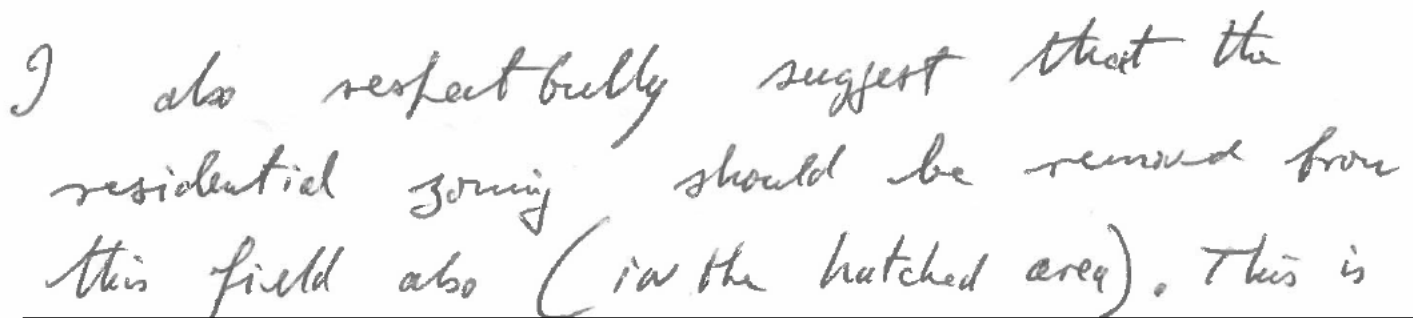 I also respectfully suggest that the
residential zoning should be removed from
this field also (in the hatched area). This is